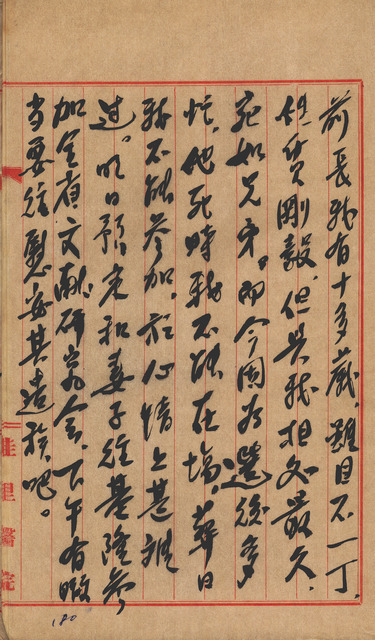 前長我有十多歲，雖目不一丁，
但賃剛毅，但与我相知最久，
宛如兄弟。即今因為選後多
忙，他死時我不能在場，葬日
我不能參加，於心情上甚難
過。明日預定和妻子往基隆參
加全省文獻研究会，下午有暇
当要往慰安其遺族吧。
佳里醫院
180